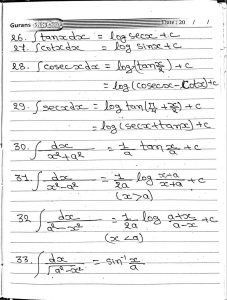 Gurans Date : 20 / /
26. ∫tanxdx = log secx + c
27. ∫cotxdx = log sinx + c
28. ∫cosecxdx = log(tan x/2) + c
= log(cosecx - Cotx) + c
29. ∫secxdx = log tan(π/4 + x/2) + c
= log(secx + tanx) + c
30. ∫dx/(x²+a²) = 1/a tan x/a + c
31. ∫dx/(x²-a²) = 1/2a log (x+a)/(x+a) + c
(x>a)
32. ∫dx/(a²-x²) = 1/2a log (a+x)/(a-x) + c
(x<a)
33. ∫dx/√(a²-x²) = sin⁻¹ x/a